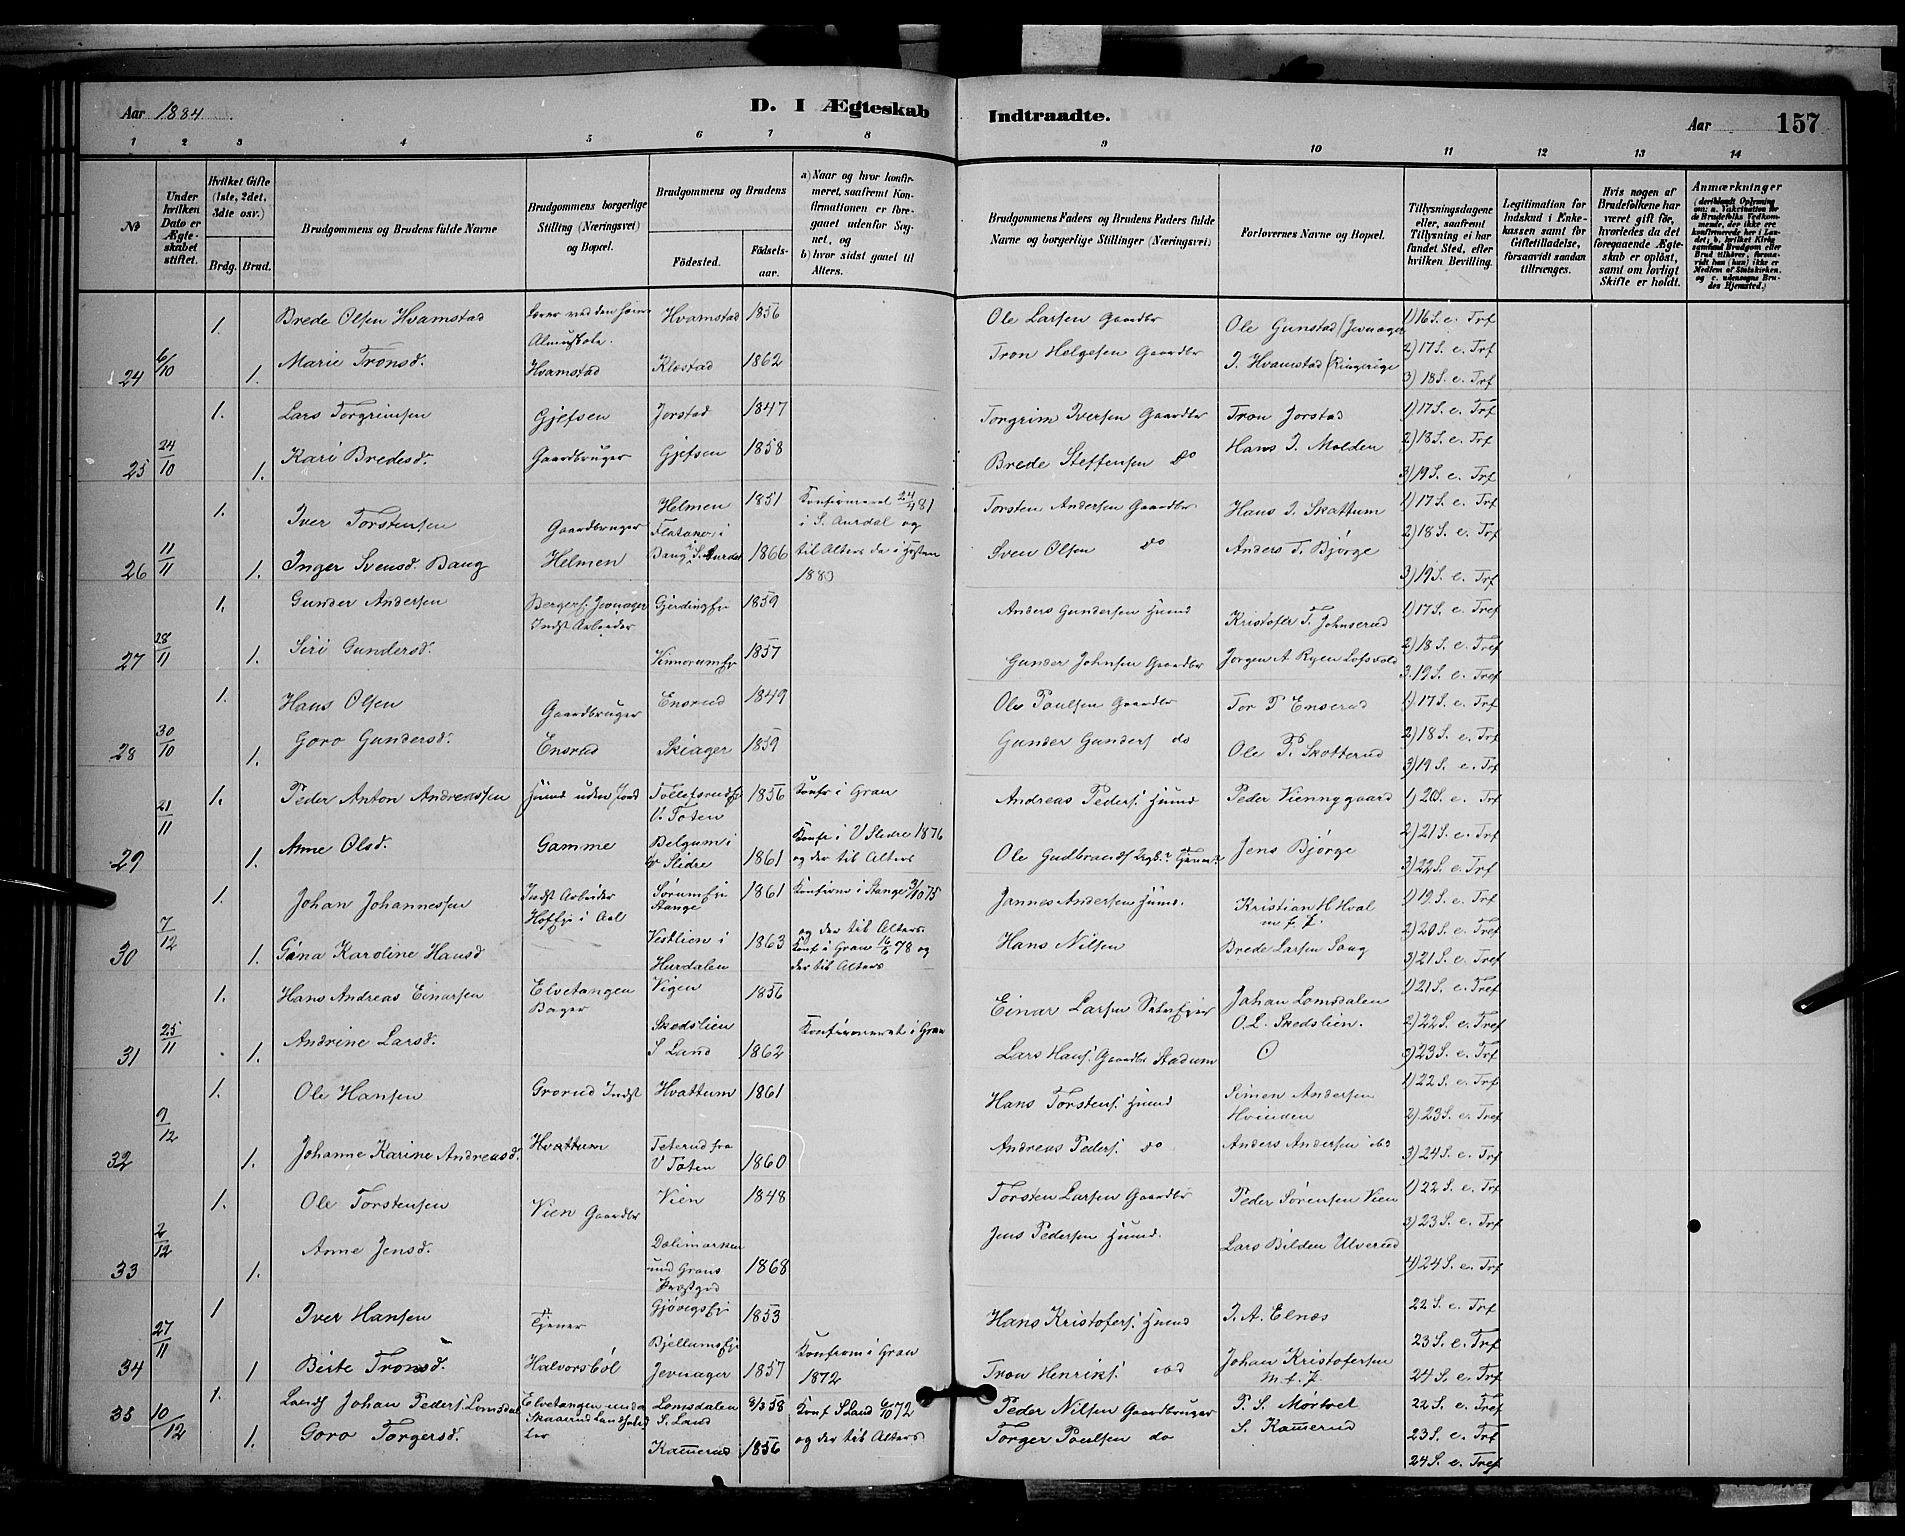 Aar 1884.
D. I Ægteskab Indtraadte.
Aar 157
1 2 3 4 5 6 7 8 9 10 11 12 13 14
No
Under hvilken Dato er Ægteskabet stiftet.
Hvilket Gifte (1ste, 2det, 3die osv.)
Brdg. Brud.
Brudgommens og Brudens fulde Navne
Brudgommens borgerlige Stilling (Næringsvei) og Bopæl.
Brudgommens og Brudens
Fødested.
Fødselsaar.
a) Naar og hvor konfirmeret, saafremt Konfirmationen er foregaaet udenfor Sognet, og
b) hvor sidst gaaet til Alters.
Brudgommens Faders og Brudens Faders fulde Navne og borgerlige Stillinger (Næringsvei)
Forlovernes Navne og Bopæl.
Tillysningsdagene eller, saafremt Tillysning ei har fundet Sted, efter hvilken Bevilling.
Legitimation for Indskud i Enkekassen samt for Giftetilladelse, forsaavidt saadan tiltrænges.
Hvis nogen af Brudefolkene har været gift før, hvorledes da det foregaaende Ægteskab er opløst, samt om lovligt Skifte er holdt.
Anmærkninger
24 6/10 1. Brede Olsen Hvamstad Hvamstad 1856 Ole Larsen Gaardbr Ole Gunstad (Jevnager 1) 16 S. e. Trf
1. Marie Tronsd. Hvamstad Klæstad 1862 Tron Helgesen Gaardbr I. Hvamstad (Ringerige 2) 17 S. e. Trf
3) 18 S. e. Trf
25 24/10 1. Lars Torgrimsen Gjefsen Jorstad 1847 Torgrim Iversen Gaardbr Tron Jorstad 1) 17 S. e. Trf
1. Kari Bredesd. Gaardbruger Gjefsen 1858 Brede Steffensen do Hans I. Molden 2) 18 S. e. Trf
3) 19 S. e. Trf
26 11/11 1. Iver Torstensen Gaardbruger Helmen 1851 Konfirmeret 24/4 81 i S. Aurdal og Torsten Andersen Gaardbr Hans I. Skattum 1) 17 S. e. Trf
1. Inger Svensd. Baug Helmen Baug i S. Aurdal 1866 til Alters da i Høsten 1883 Sven Olsen do Anders T. Bjørge 2) 18 S. e. Trf
3) 19 S. e. Trf
27 28/11 1. Gunder Andersen Jevnager Indst Arbeider Gjerdingei 1859 Anders Gundersen Husmd Kristofer T. Johnserud 1) 17 S. e. Tref
1. Siri Gundersd. 1857 Gunder Johnsen Gaardbr Jørgen A. Ryen 2) 18 S. e. Tref
3. 19 S. e. Tref
28 30/10 1. Hans Olsen Gaardbruger Ensrud 1849 Ole Paulsen Gaardbr Tor P Enserud 1) 17 S. e. Trf
1. Goro Gundersd. Ensrud Skiager 1859 Gunder Gunders do Ole P. Skotterud 2) 18 S. e. Trf
3) 19 S. e. Trf
29 21/11 1. Peder Anton Andreassen Husmd uden Jord V. Toten 1856 Konfr i Gran Andreas Peders. Husmd Peder Viennygaard 1) 20 S. e. Trf
1. Anne Olsd. Gamme Belgum i V Slidre 1861 Konfr i V Slidre 1876 og der til Alters Ole Gudbrands Jens Bjørge 2) 21 S. e. Trf
3) 22 S. e. Trf
30 7/12 1. Johan Johannessen Indst Arbeider Hofei i Aal Sørumei Stange 1861 Konfirmr i Stange 3/10 75 og der til Alters. Jannes Andersen Husmd. Kristian H Hval m. f. J. 1) 19 S. e. Trf
1. Gina Karoline Hansd Vestlien i Hurdalen 1863 Konf i Gran 16/6 78 og der til Alters Hans Nilsen Brede Larsen Saug 2) 20 S. e. Tref
3) 21 S. e. Tref
31 25/11 1. Hans Andreas Einarsen Elvetangen Bager Vigen 1856 Einar Larsen Johan Lomsdalen 1) 21 S. e. Tref
1. Andrine Larsd. Skedslien S Land 1862 Konfirmeret i Gran Lars Hans. Gaardbr Stadum O. L. Skedslien. 2) 22 S. e. Tref
3) 23 S. e. Trf
32 9/12 1. Ole Hansen Grorud Indst Hvattum 1861 Hans Torstens. Husmd Simen Andersen Hvinden 1) 22 S. e. Trf
1. Johanne Karine Andreasd. Hvattum Teterud fra V Toten 1860 Andreas Peders. do Anders Andersen ibd 2) 23 S. e. Tref
3) 24 S. e. Trf
33 2/12 1. Ole Torstensen Vien Gaardbr Vien 1848 Torsten Larsen Gaardbr Peder Sørensen Vien 1) 22 S. e. Trf
1. Anne Jensd. Dælimarken und Grans Præstgrd 1868 Jens Pedersen Husmd. Lars Bilden Ulverud 3) 23 S. e. Trf
4) 24 S. e. Trf
34 27/11 1 Iver Hansen Tjener Gjøvigsei 1853 Hans Kristofers. Husmd I. A. Elnæs 22 S. e. Trf
1 Birte Tronsd. Halvorsbøl Bjellumsei Jevnager 1857 Konfrom i Gran 1872 Tron Henriks. ibd Johan Kristofersen m. f. J. 23 S. e. Trf
24 S. e. Trf
35 10/12 1. Johan Peders. Lomsdal Elvetangen und Skaarud Lomsdalen S. Land 8/3 58 Konf S Land 6/10 72 Peder Nilsen Gaardbruger P. S. Mørtvet 22 S. e. Tref
1. Goro Torgersd. Kamerud 1856 og der til Alters Torger Poulsen do S. Kamerud 23 S. e. Trf
24 S. e. Tref